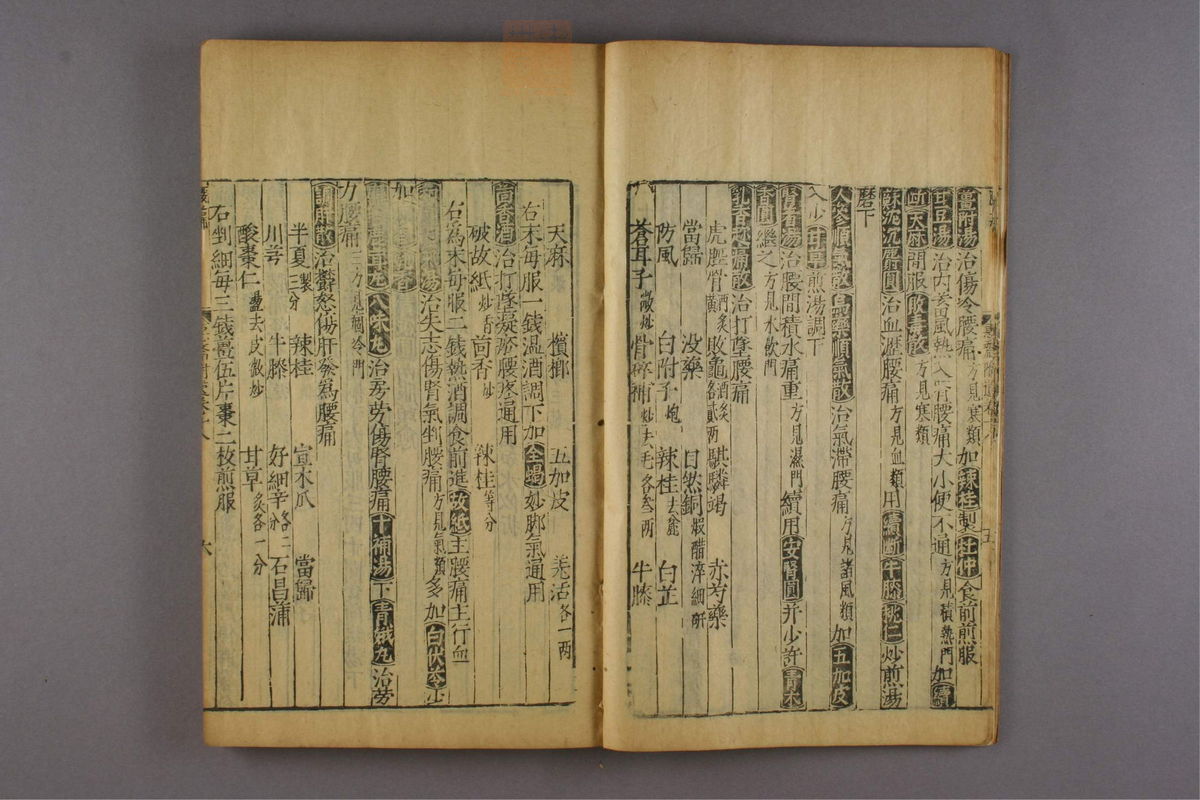 薑附湯治傷冷腰痛方見寒類加辣桂製杜仲食前煎服
甘豆湯治內蓄風熱入腎腰痛大小便不通方見積熱門加續
斷天麻間服敗毒散方見寒類
蘇沉九寶治血瀝腰痛方見血類用續斷牛膝桃仁炒煎湯
磨下
人參順氣散烏藥順氣散治氣滯腰痛方見諸風類加五加皮
入少甘草煎湯調下
腎着湯治腰間積水痛重方見濕門續用安腎圓并少許青木
香圓繼之方見水飲門
乳香趁痛散治打墜腰痛
虎脛骨酒炙黃敗龜酒炙各貳兩騏驎竭 赤芍藥
當歸 没藥 自然銅煅醋淬細研
防風 白附子炮 辣桂去麄 白芷
蒼耳子微炒骨碎補炒去毛各叁兩 牛膝
天麻 檳榔 五加皮 羌活各一兩
右末每服一錢温酒調下加全蝎妙脚氣通用
茴香酒治打墜凝瘀腰疼通用
破故紙炒香茴香炒 辣桂等分
右為末每服二錢熱酒調食前進故紙主腰痛主行血
治失志傷腎氣剉腰痛方見氣類多加白伏苓少
加
八味丸治房勞傷腎腰痛十補湯下青娥丸治勞
力腰痛二方見痼冷門
調肝散治鬱怒傷肝發為腰痛
半夏製三分 辣桂 宣木瓜 當歸
川芎 牛膝 好細辛各二分 石昌蒲
酸棗仁盪去皮微炒 甘草炙各一分
右剉細每三錢薑伍片棗二枚煎服
六